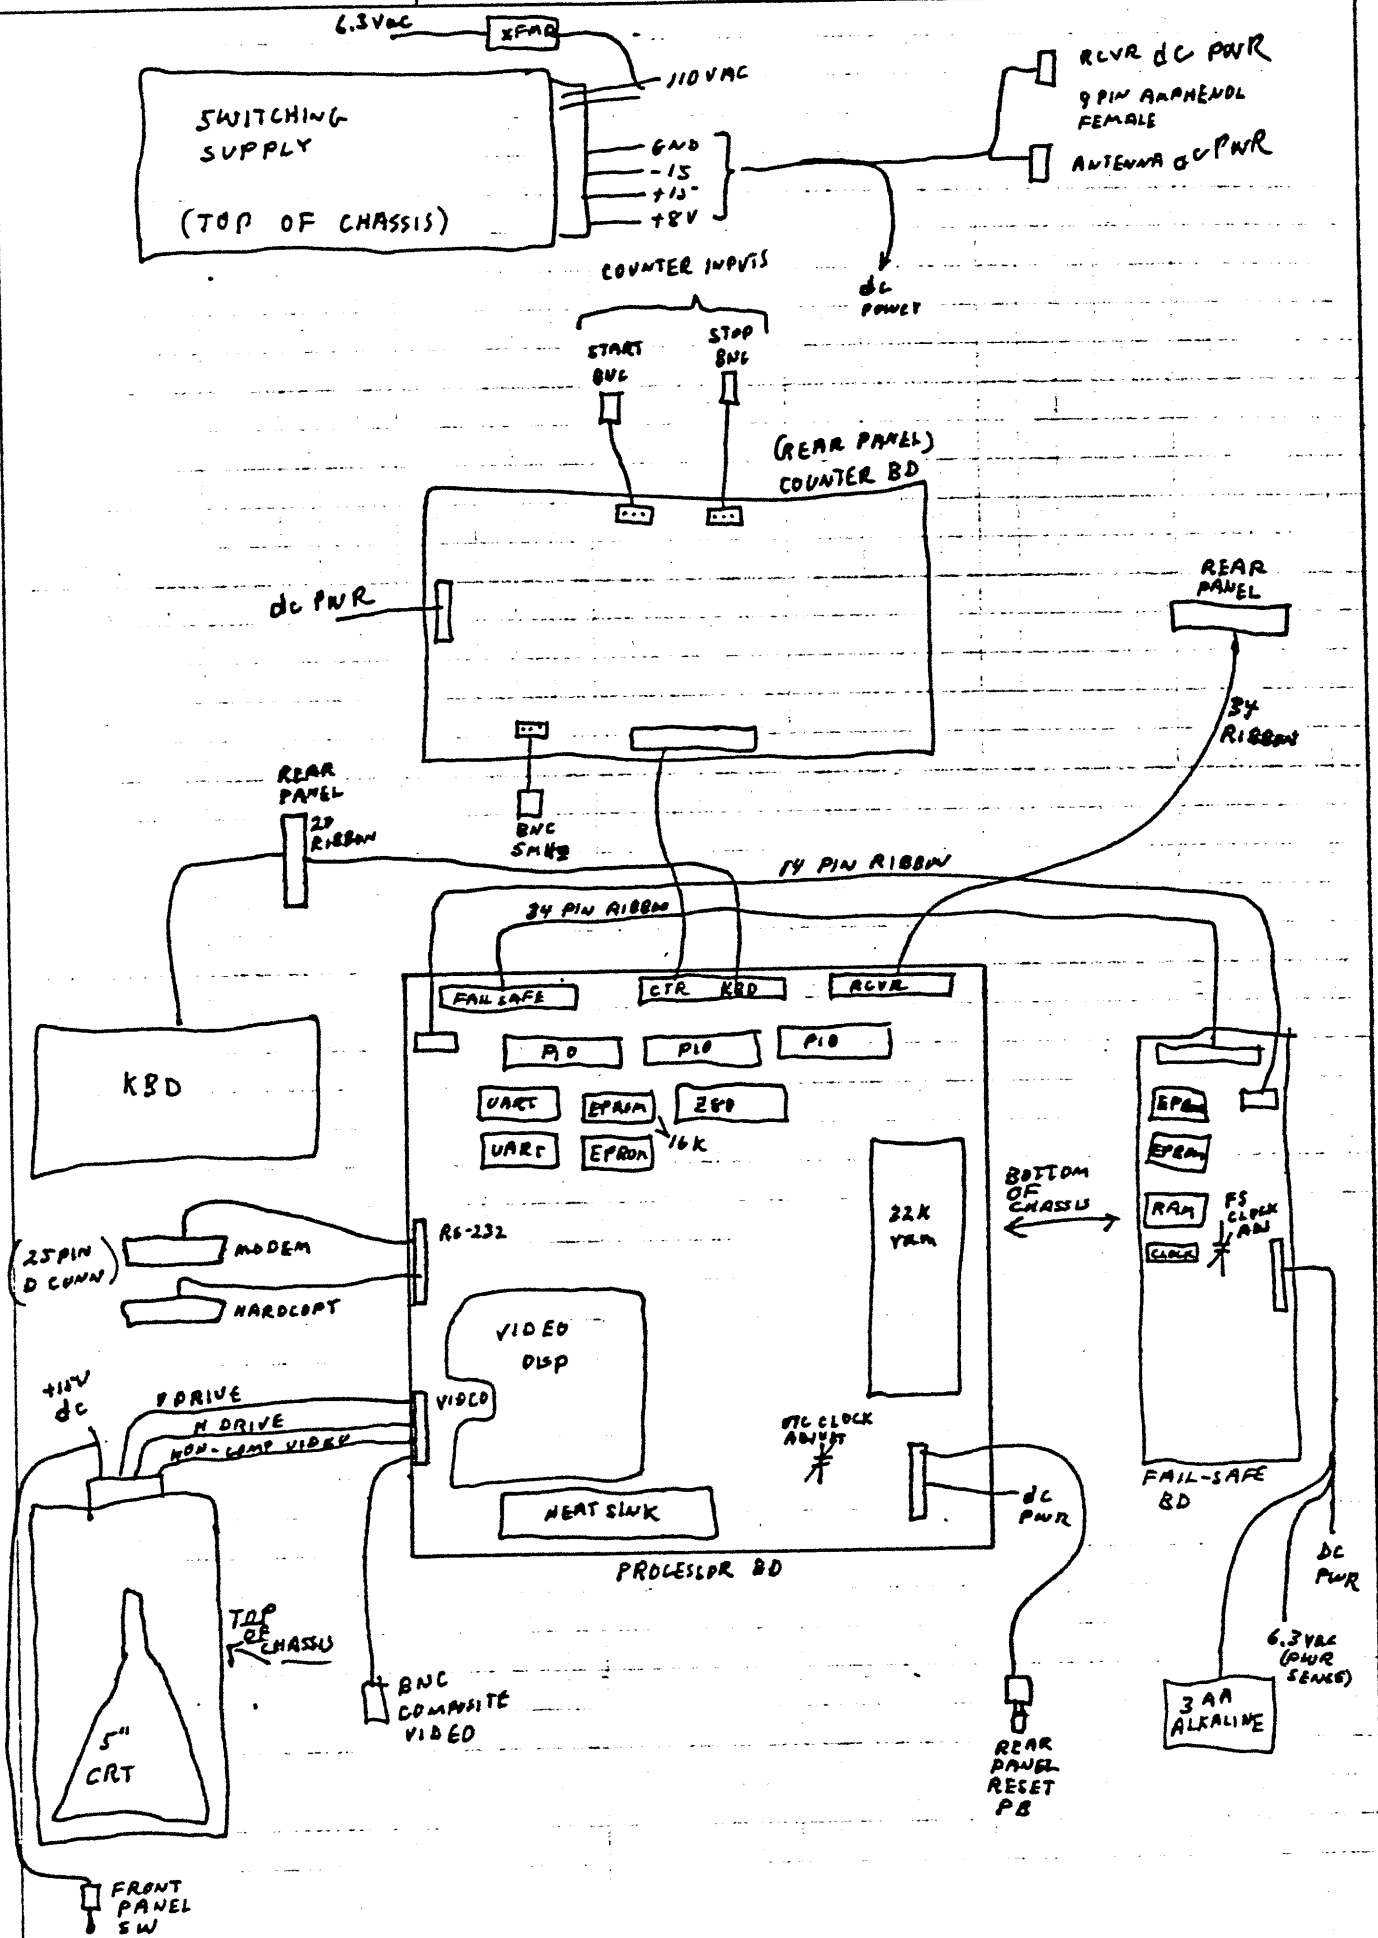 6.3Vac
XFMR
110VAC
SWITCHING
SUPPLY
(TOP OF CHASSIS)
GND
-15
+15
+8V
RCVR dc PWR
9 PIN AMPHENOL
FEMALE
ANTENNA dc PWR
dc
POWER
COUNTER INPUTS
START
BNC
STOP
BNC
(REAR PANEL)
COUNTER BD
dc PWR
REAR
PANEL
34
RIBBON
REAR
PANEL
RIBBON
BNC
5MHz
14 PIN RIBBON
34 PIN RIBBON
FAIL SAFE
CTR KBD
RCVR
PIO
PIO
PIO
KBD
UART
EPROM
Z80
UART
EPROM
16K
EPROM
EPROM
RAM
CLOCK
FS
CLOCK
ADJ
BOTTOM
OF
CHASSIS
32K
(25 PIN
D CONN)
MODEM
HARDCOPY
RS-232
VIDEO
DISP
+15V
dc
V DRIVE
H DRIVE
NON-COMP VIDEO
VIDEO
CLOCK
ADJUST
HEAT SINK
dc
PWR
PROCESSOR BD
FAIL-SAFE
BD
DC
PWR
6.3VAC
(PWR
SENSE)
TOP
OF
CHASSIS
5"
CRT
BNC
COMPOSITE
VIDEO
3 AA
ALKALINE
REAR
PANEL
RESET
PB
FRONT
PANEL
SW